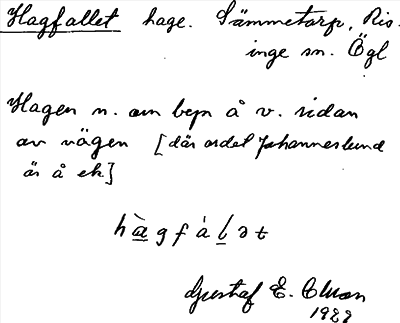 Hagfallet hage. Sämmetorp, Ris-
inge sn. Ögl
Hagen n. om bepn å v. sidan
av vägen [där ordet Johanneslund
är å ek]
hàgfálət
Gustaf E. Olsson
1928